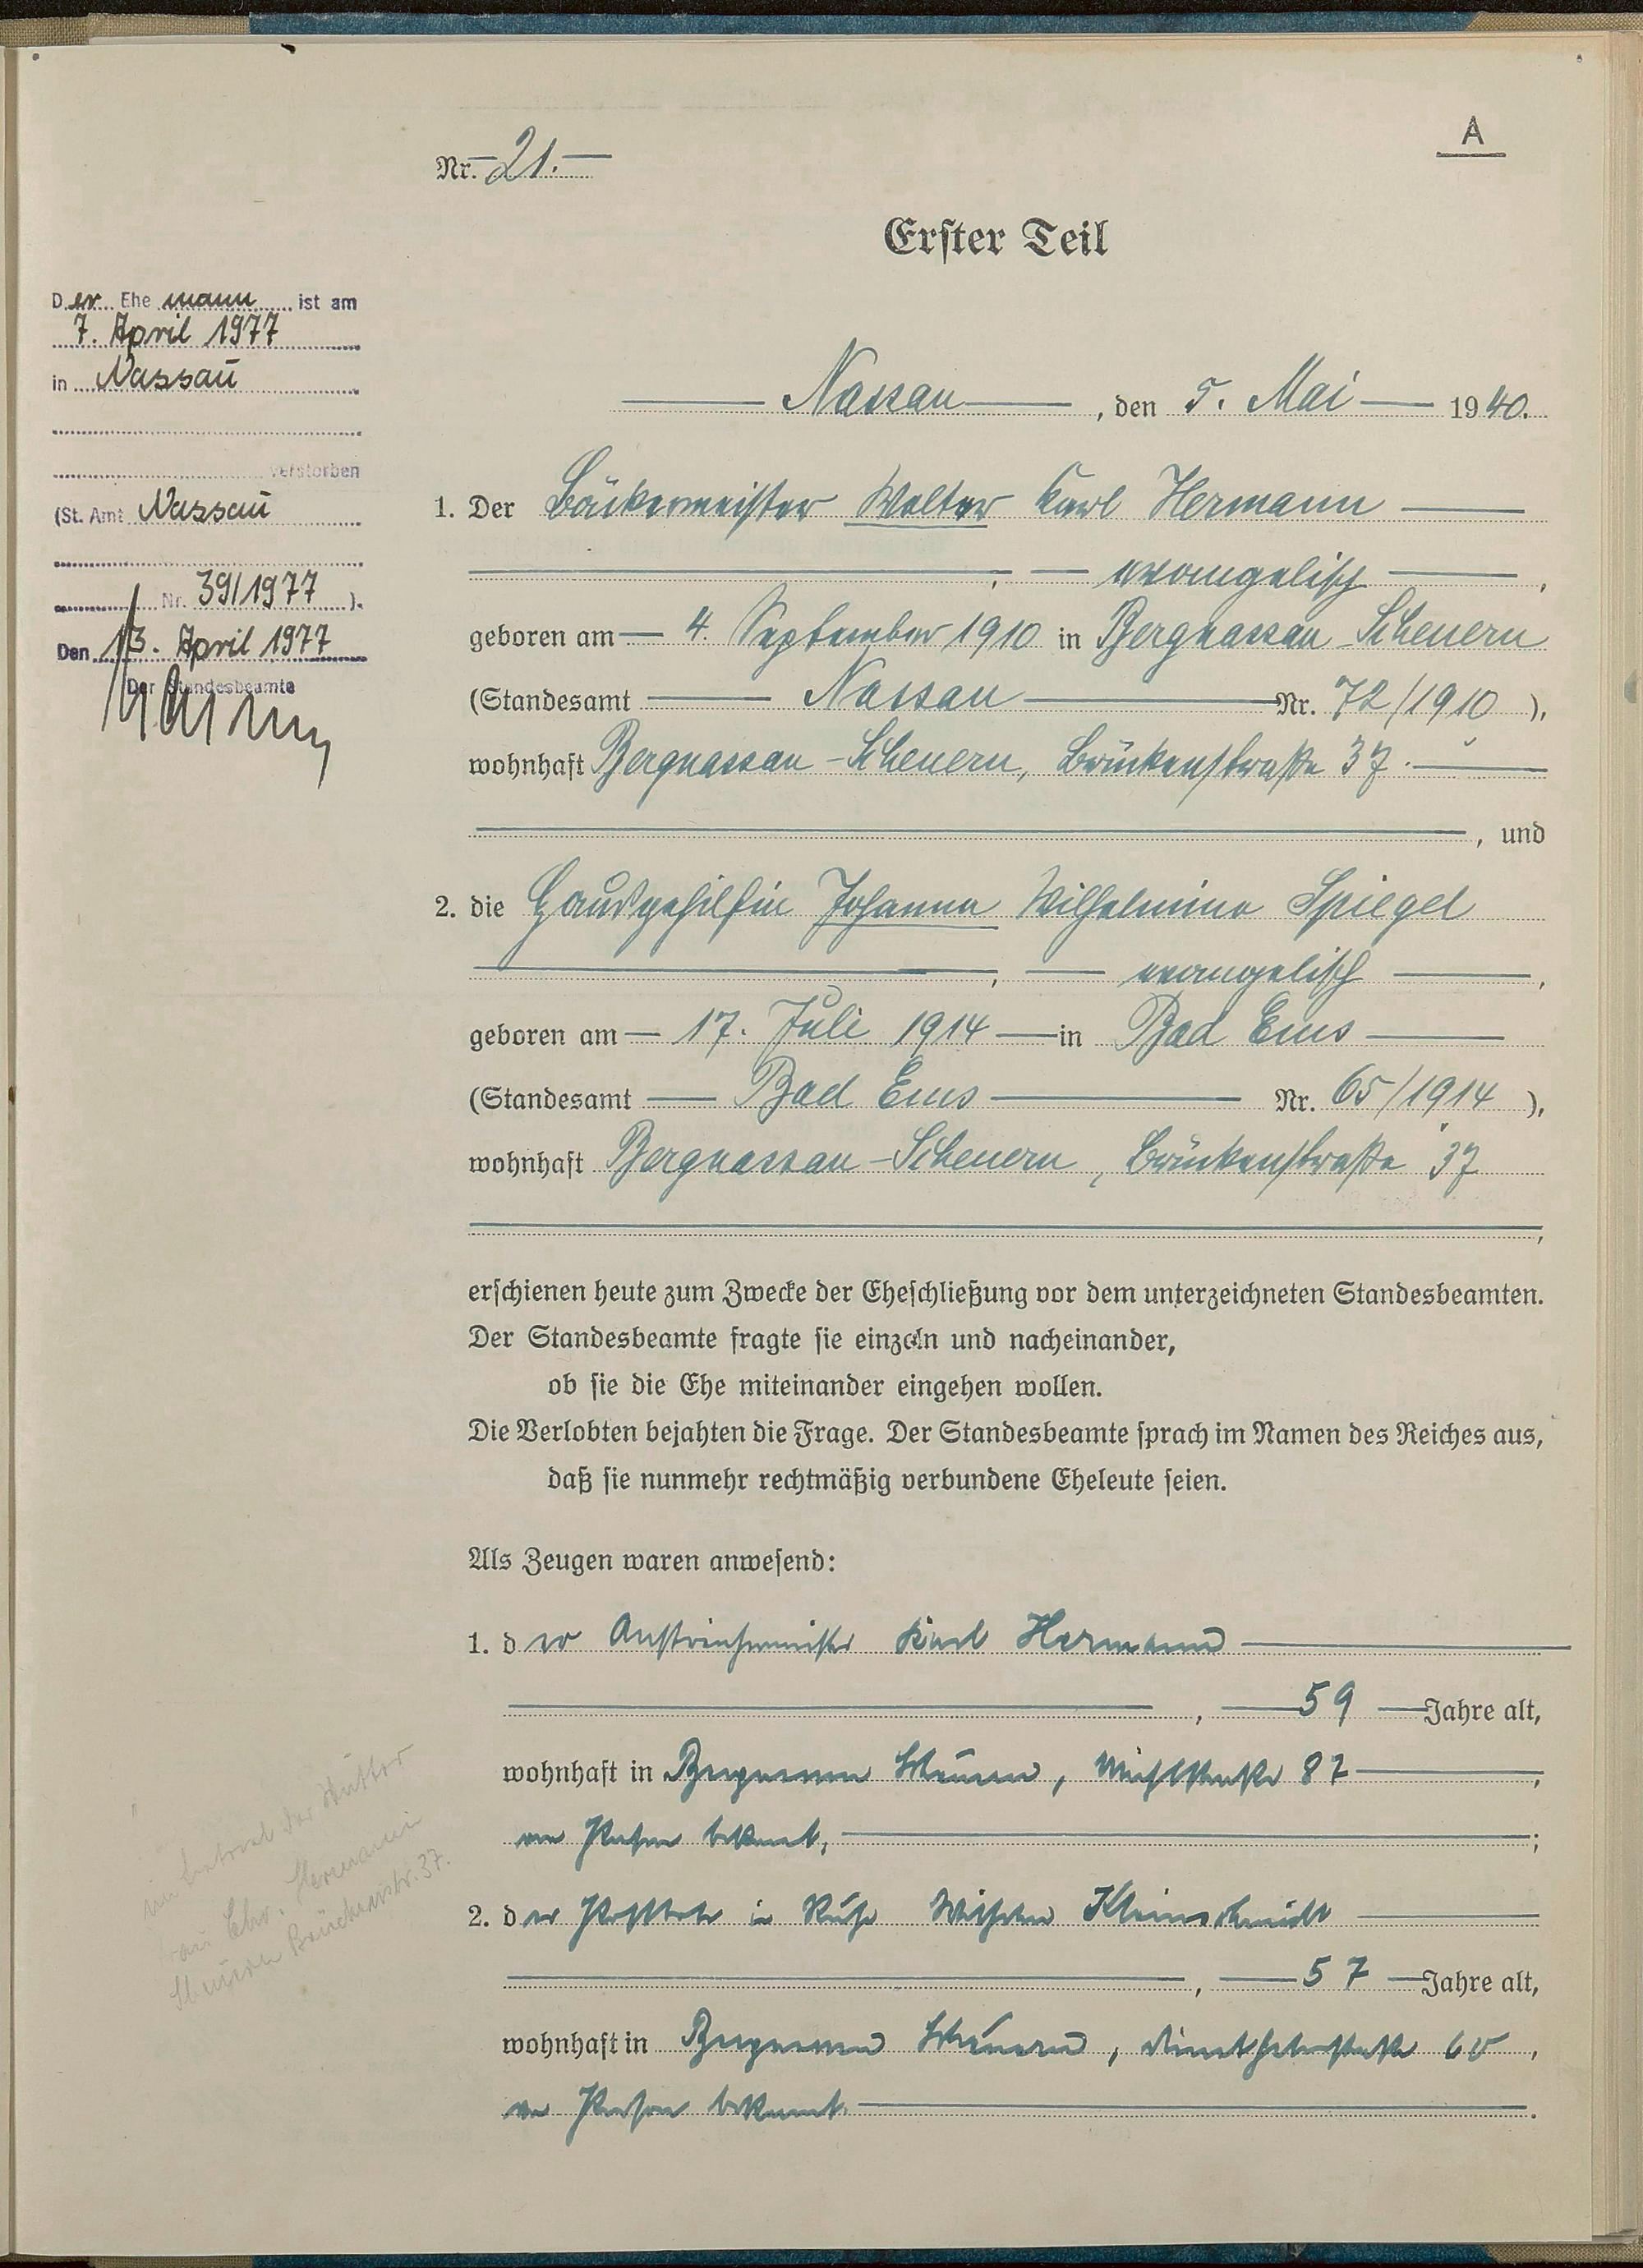 A
Nr. 21.
Erster Teil
Der Ehemann ist am
7. April 1977
in Nassau
verstorben
(St. Amt Nassau
Nr. 39/1977 ).
Den 13. April 1977
Der Standesbeamte
Nassau, den 5. Mai 1940.
1. Der Bäckermeister Walter Karl Hermann
, evangelisch,
geboren am 4. September 1910 in Bergnassau-Scheuern
(Standesamt Nassau Nr. 72/1910 ),
wohnhaft Bergnassau-Scheuern, Brückenstraße 37.
, und
2. die Hausgehilfin Johanna Wilhelmine Spiegel
, evangelisch,
geboren am 17. Juli 1914 in Bad Ems
(Standesamt Bad Ems Nr. 65/1914 ),
wohnhaft Bergnassau-Scheuern, Brückenstraße 37
,
erschienen heute zum Zwecke der Eheschließung vor dem unterzeichneten Standesbeamten.
Der Standesbeamte fragte sie einzeln und nacheinander,
ob sie die Ehe miteinander eingehen wollen.
Die Verlobten bejahten die Frage. Der Standesbeamte sprach im Namen des Reiches aus,
daß sie nunmehr rechtmäßig verbundene Eheleute seien.
Als Zeugen waren anwesend:
1. der Anstreichermeister Karl Hermann
, 59 Jahre alt,
wohnhaft in Bergnassau Scheuern, Mühlstraße 87,
von Person bekannt,;
2. der Postbote in Ruhe Wilhelm Kleinschmidt
, 57 Jahre alt,
wohnhaft in Bergnassau Scheuern, 60,
von Person bekannt.
der Mutter
Chr. Hermann
Scheuern Brückenstr. 37.